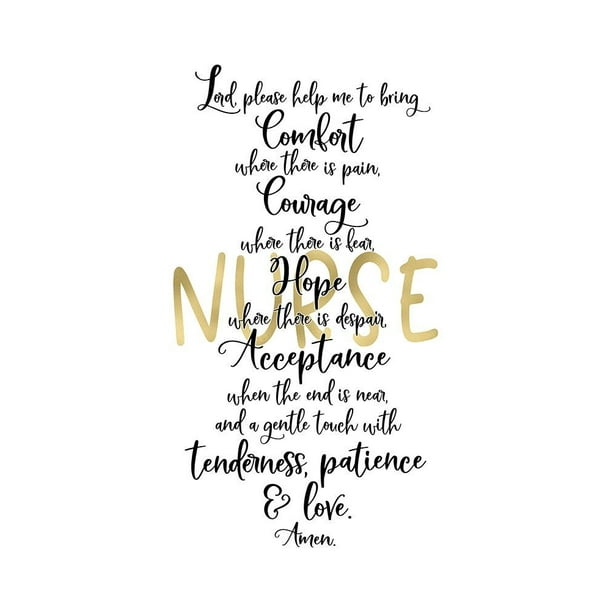 Lord, please help me to bring
Comfort
where there is pain,
Courage
where there is fear,
NURSE
Hope
where there is despair,
Acceptance
when the end is near,
and a gentle touch with
tenderness, patience
& love.
Amen.